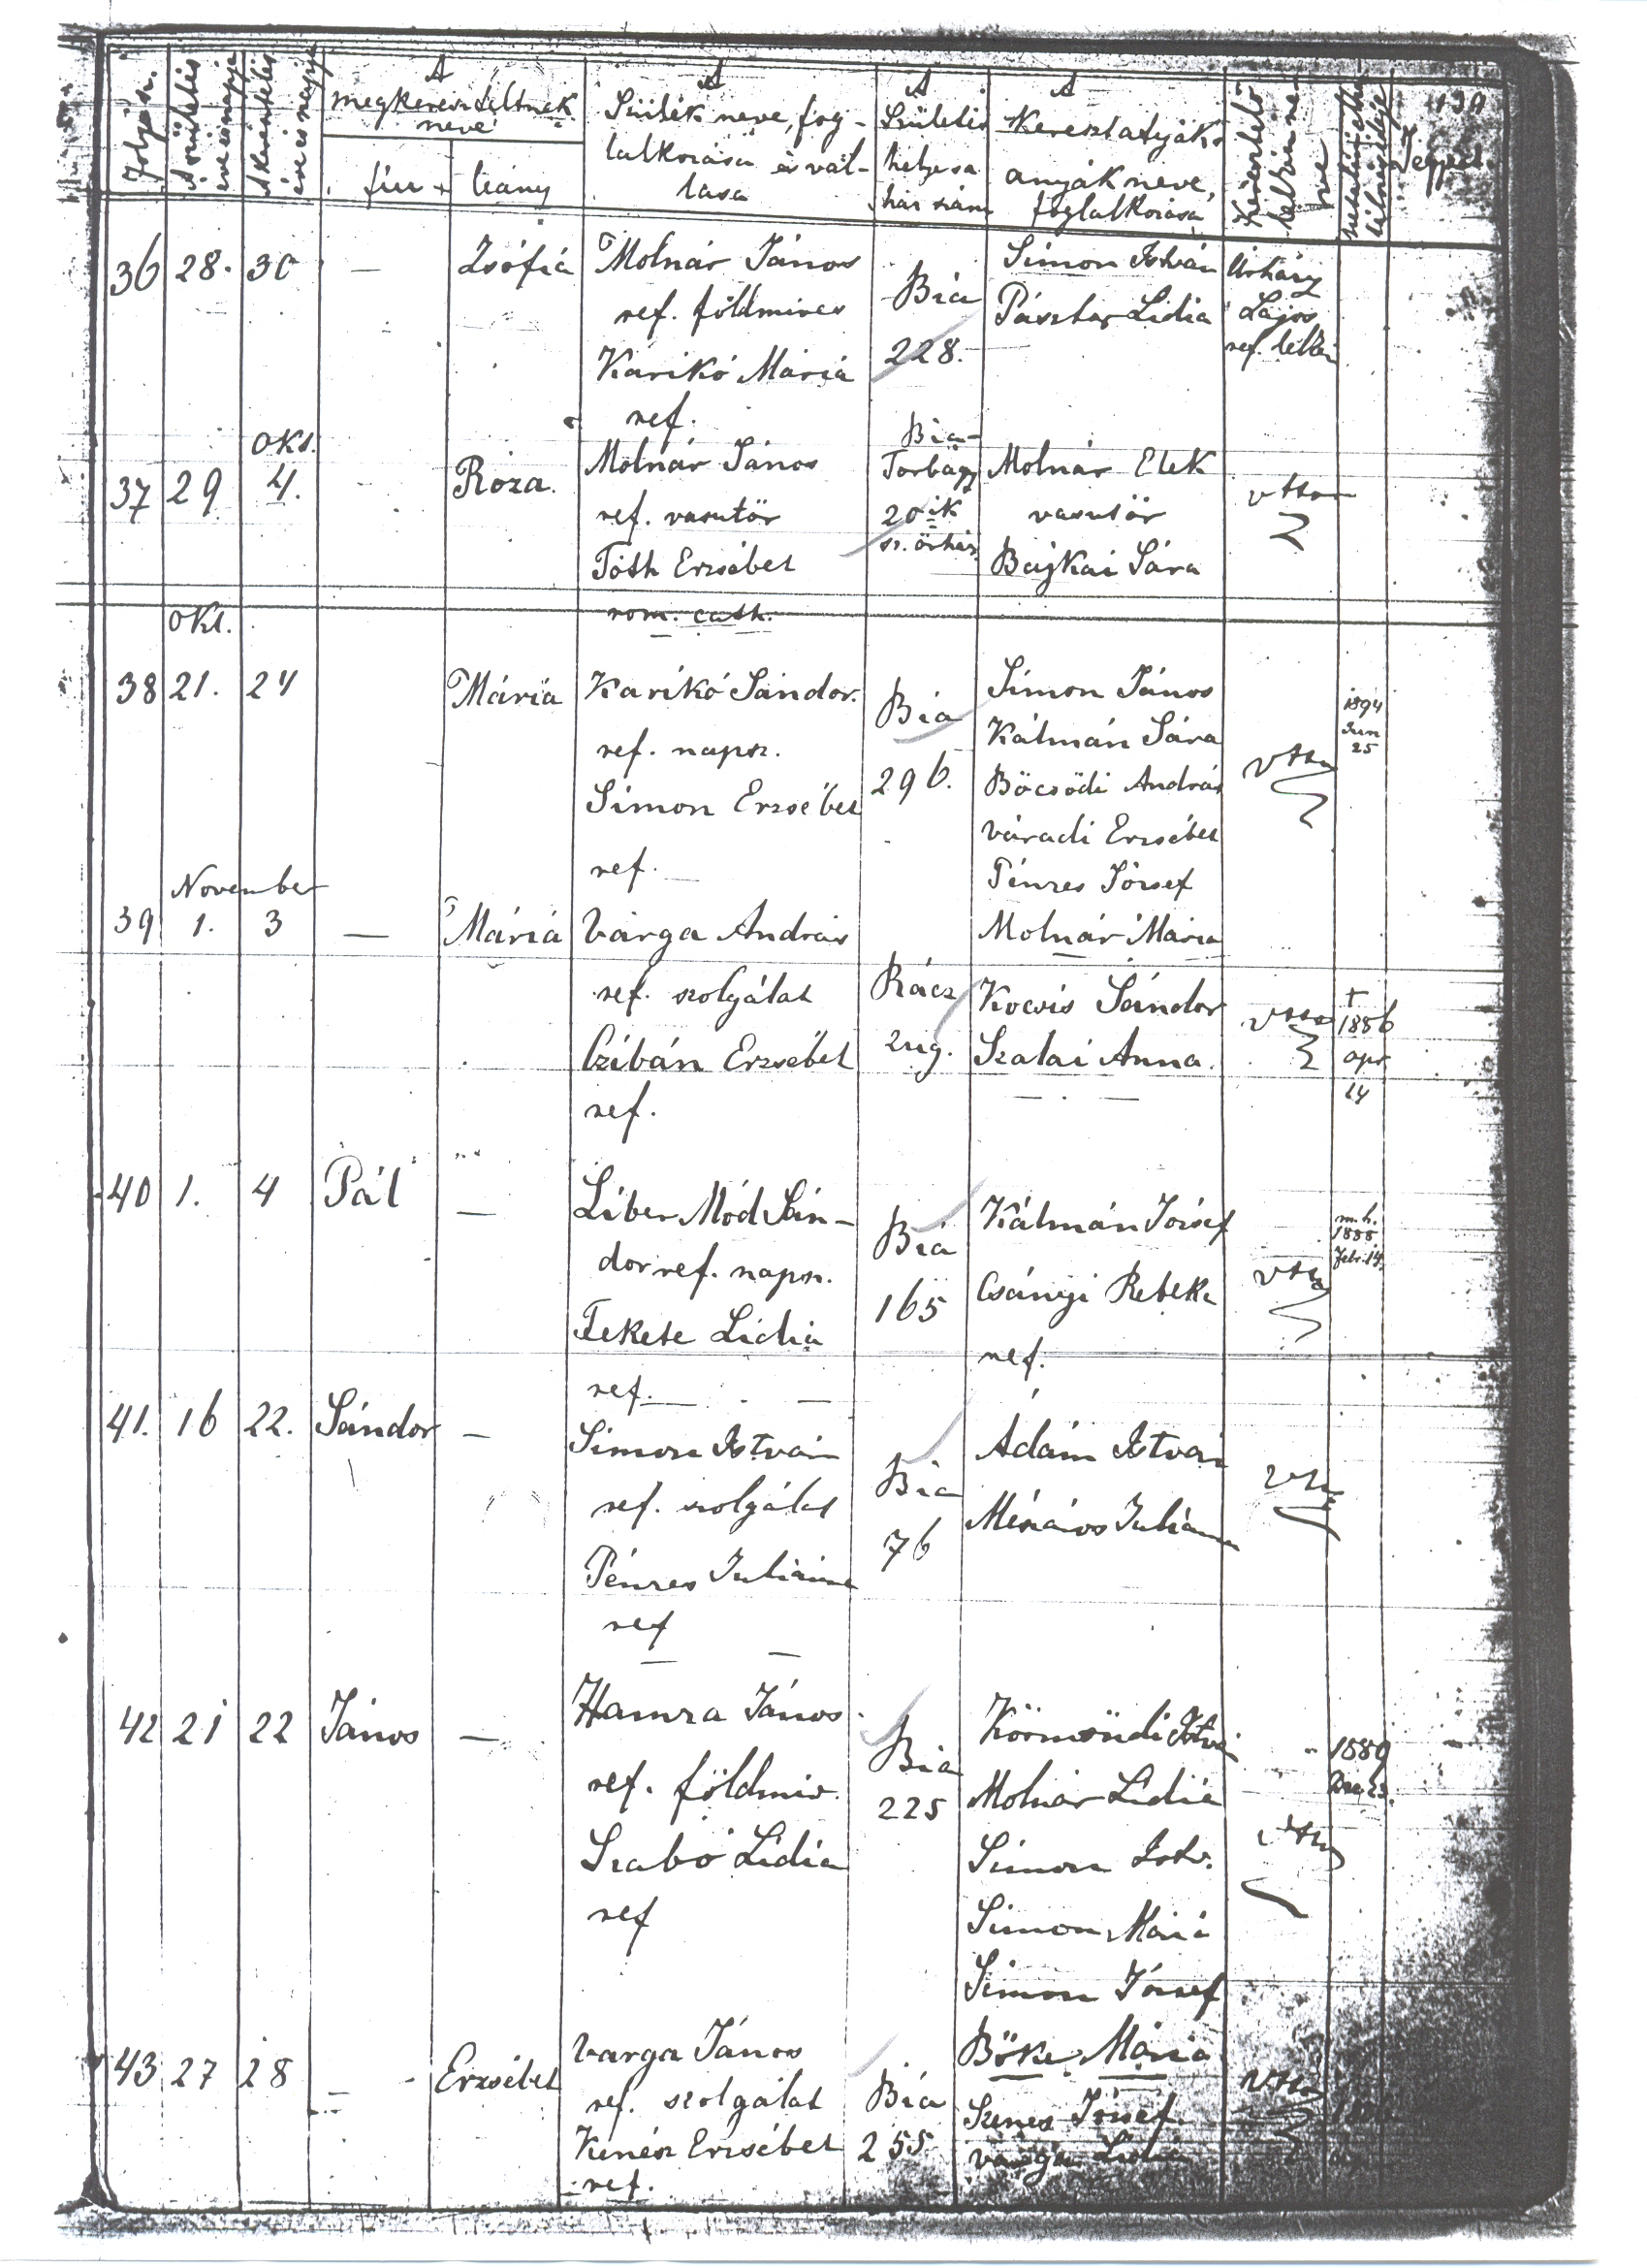 439
Folyó sz.
A születés éve és napja
A keresztelés éve és napja
A megkereszteltnek neve
fiu
leány
A Szülék neve, fog-
lalkozása és val-
lása
A Születés
helye s a
ház szám
A Keresztatyák s
anyák neve,
foglalkozása
Keresztelő
lelkész ne
ve
Jegyzet.
36 28. 30 — Zsófia
Molnár János
ref. földmives
Karikó Mária
ref.
Bia
228.
Simon István
Pásztor Lidia
Lajos
ref. lelkész
Okt.
37 29 4. - Róza.
Molnár János
ref. vasutőr
Tóth Erzsébet
rom. cath.
Bia-
Torbágy
20ik
sz. őrház
Molnár Elek
vasutőr
Bajkai Sára
Okt.
38 21. 24 Mária
Karikó Sándor.
ref. napsz.
Simon Erzsébet
ref.
Bia
296.
Simon János
Kálmán Sára
Böcsödi András
Váradi Erzsébet
Pénzes József
Molnár Mária
1894
Jun
25
November
39 1. 3 — Mária
Varga András
ref. szolgálat
Czibán Erzsébet
ref.
Rácz
zug.
Kocsis Sándor
Szalai Anna.
†
1886
apr
14
40 1. 4 Pál —
Líber Mód Sán-
dor ref. napsz.
Fekete Lídia
ref.
Bia
165
Kálmán József
Csányi Rebeka
ref.
m.h.
1888
Febr. 14.
41. 16 22. Sándor —
Simon István
ref. szolgálat
Pénzes Juliánna
ref
Bia
76
Ádám István
Mészáros Juliánna
42 21 22 János —
Hamza János
ref. földmiv.
Szabó Lídia
ref
Bia
225
Körmöndi István
Molnár Lídia
Simon Istv.
Simon Mária
Simon József
Böke Mária
1889
43 27 28 — Erzsébet
Varga János
ref. szolgálat
Kenész Erzsébet
ref.
Bia
255
Szenes József
Varga Lidia